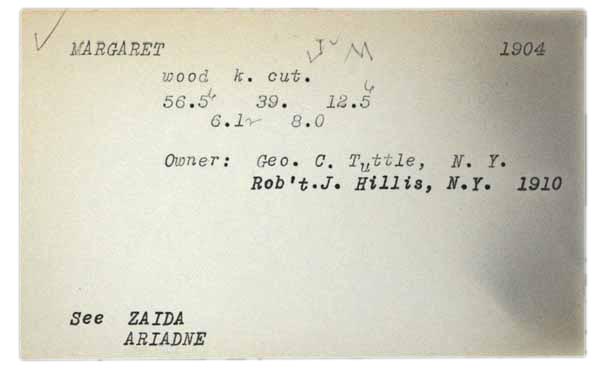 MARGARET 1904
wood k. cut.
56.5 39. 12.5
6.1 8.0
Owner: Geo. C. Tuttle, N. Y.
Rob't.J. Hillis, N.Y. 1910
See ZAIDA
ARIADNE